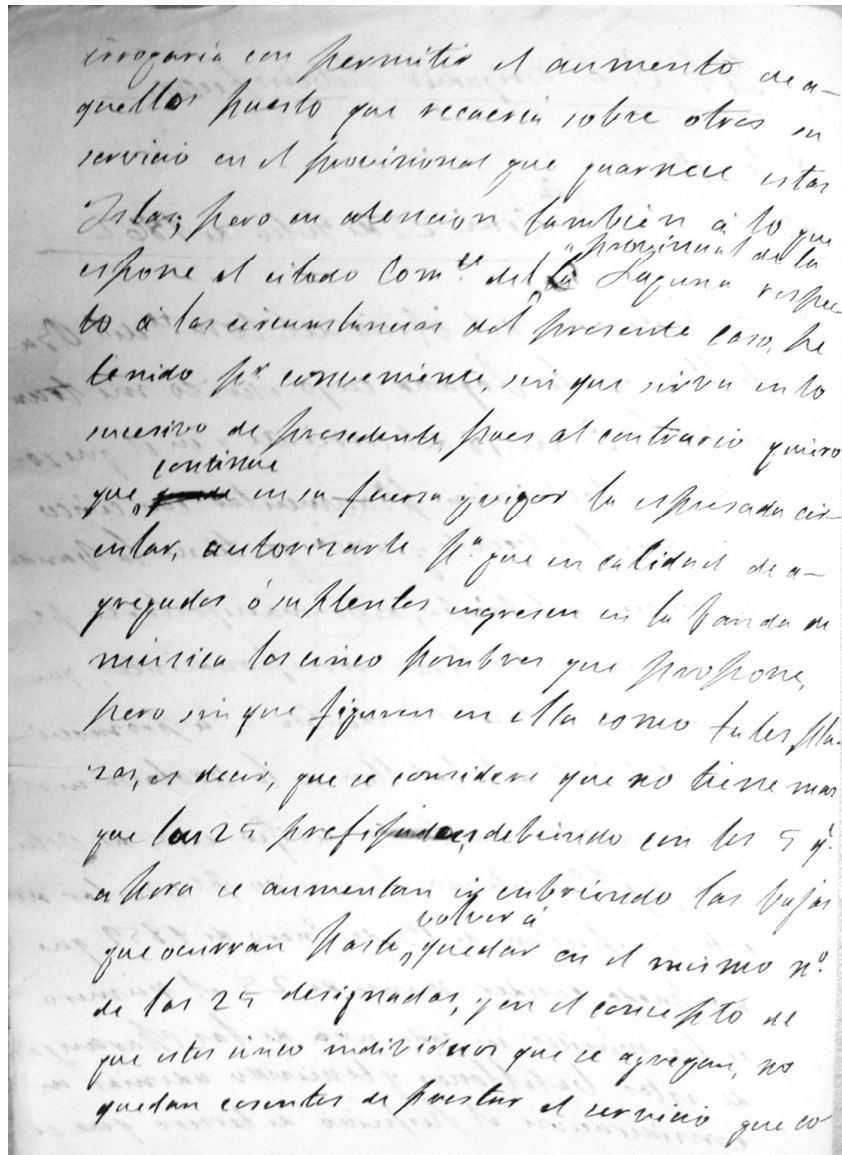 irrogaria con permitir el aumento de a-
quellos puesto que recaeria sobre otros su
servicio en el provisional que guarnece estas
Islas; pero en atencion tambien á lo que
espone el citado Com.te del provincial de la Laguna respec-
to á las circunstancias del presente caso, he
tenido p.r conveniente, sin que sirva en lo
sucesivo de presedente pues al contrario quiero
que continue en su fuersa y vigor la espresada cir-
cular, autorisarle p.a que en calidad de a-
gregados ó suplentes ingresen en la banda de
música los cinco hombres que propone,
pero sin que figuren en ella como tales pla-
zas, es decir, que se considere que no tiene mas
que las 25 prefijadas, debiendo con los 5 q.e
ahora se aumentan ir cubriendo las bajas
que ocurran hasta volver á quedar en el mismo n.o
de las 25 designadas, y en el concepto de
que estos cinco individuos que se agregan, no
quedan esentos de prestar el servicio que co